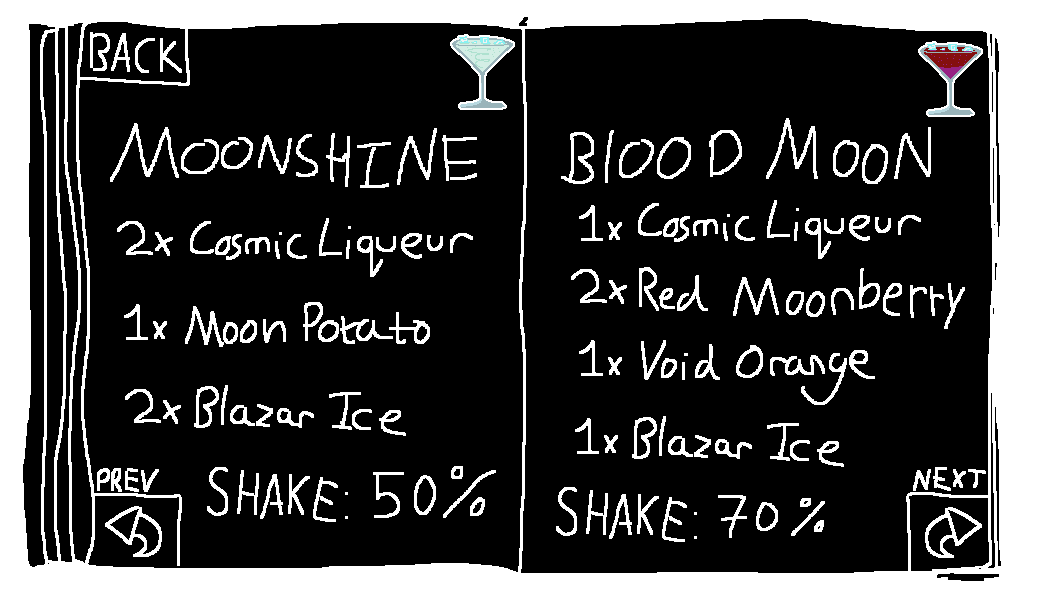 BACK
MOONSHINE
2x Cosmic Liqueur
1x Moon Potato
2x Blazar Ice
SHAKE: 50%
PREV
BlOOD MOON
1x Cosmic Liqueur
2x Red Moonberry
1x Void Orange
1x Blazar Ice
SHAKE: 70%
NEXT